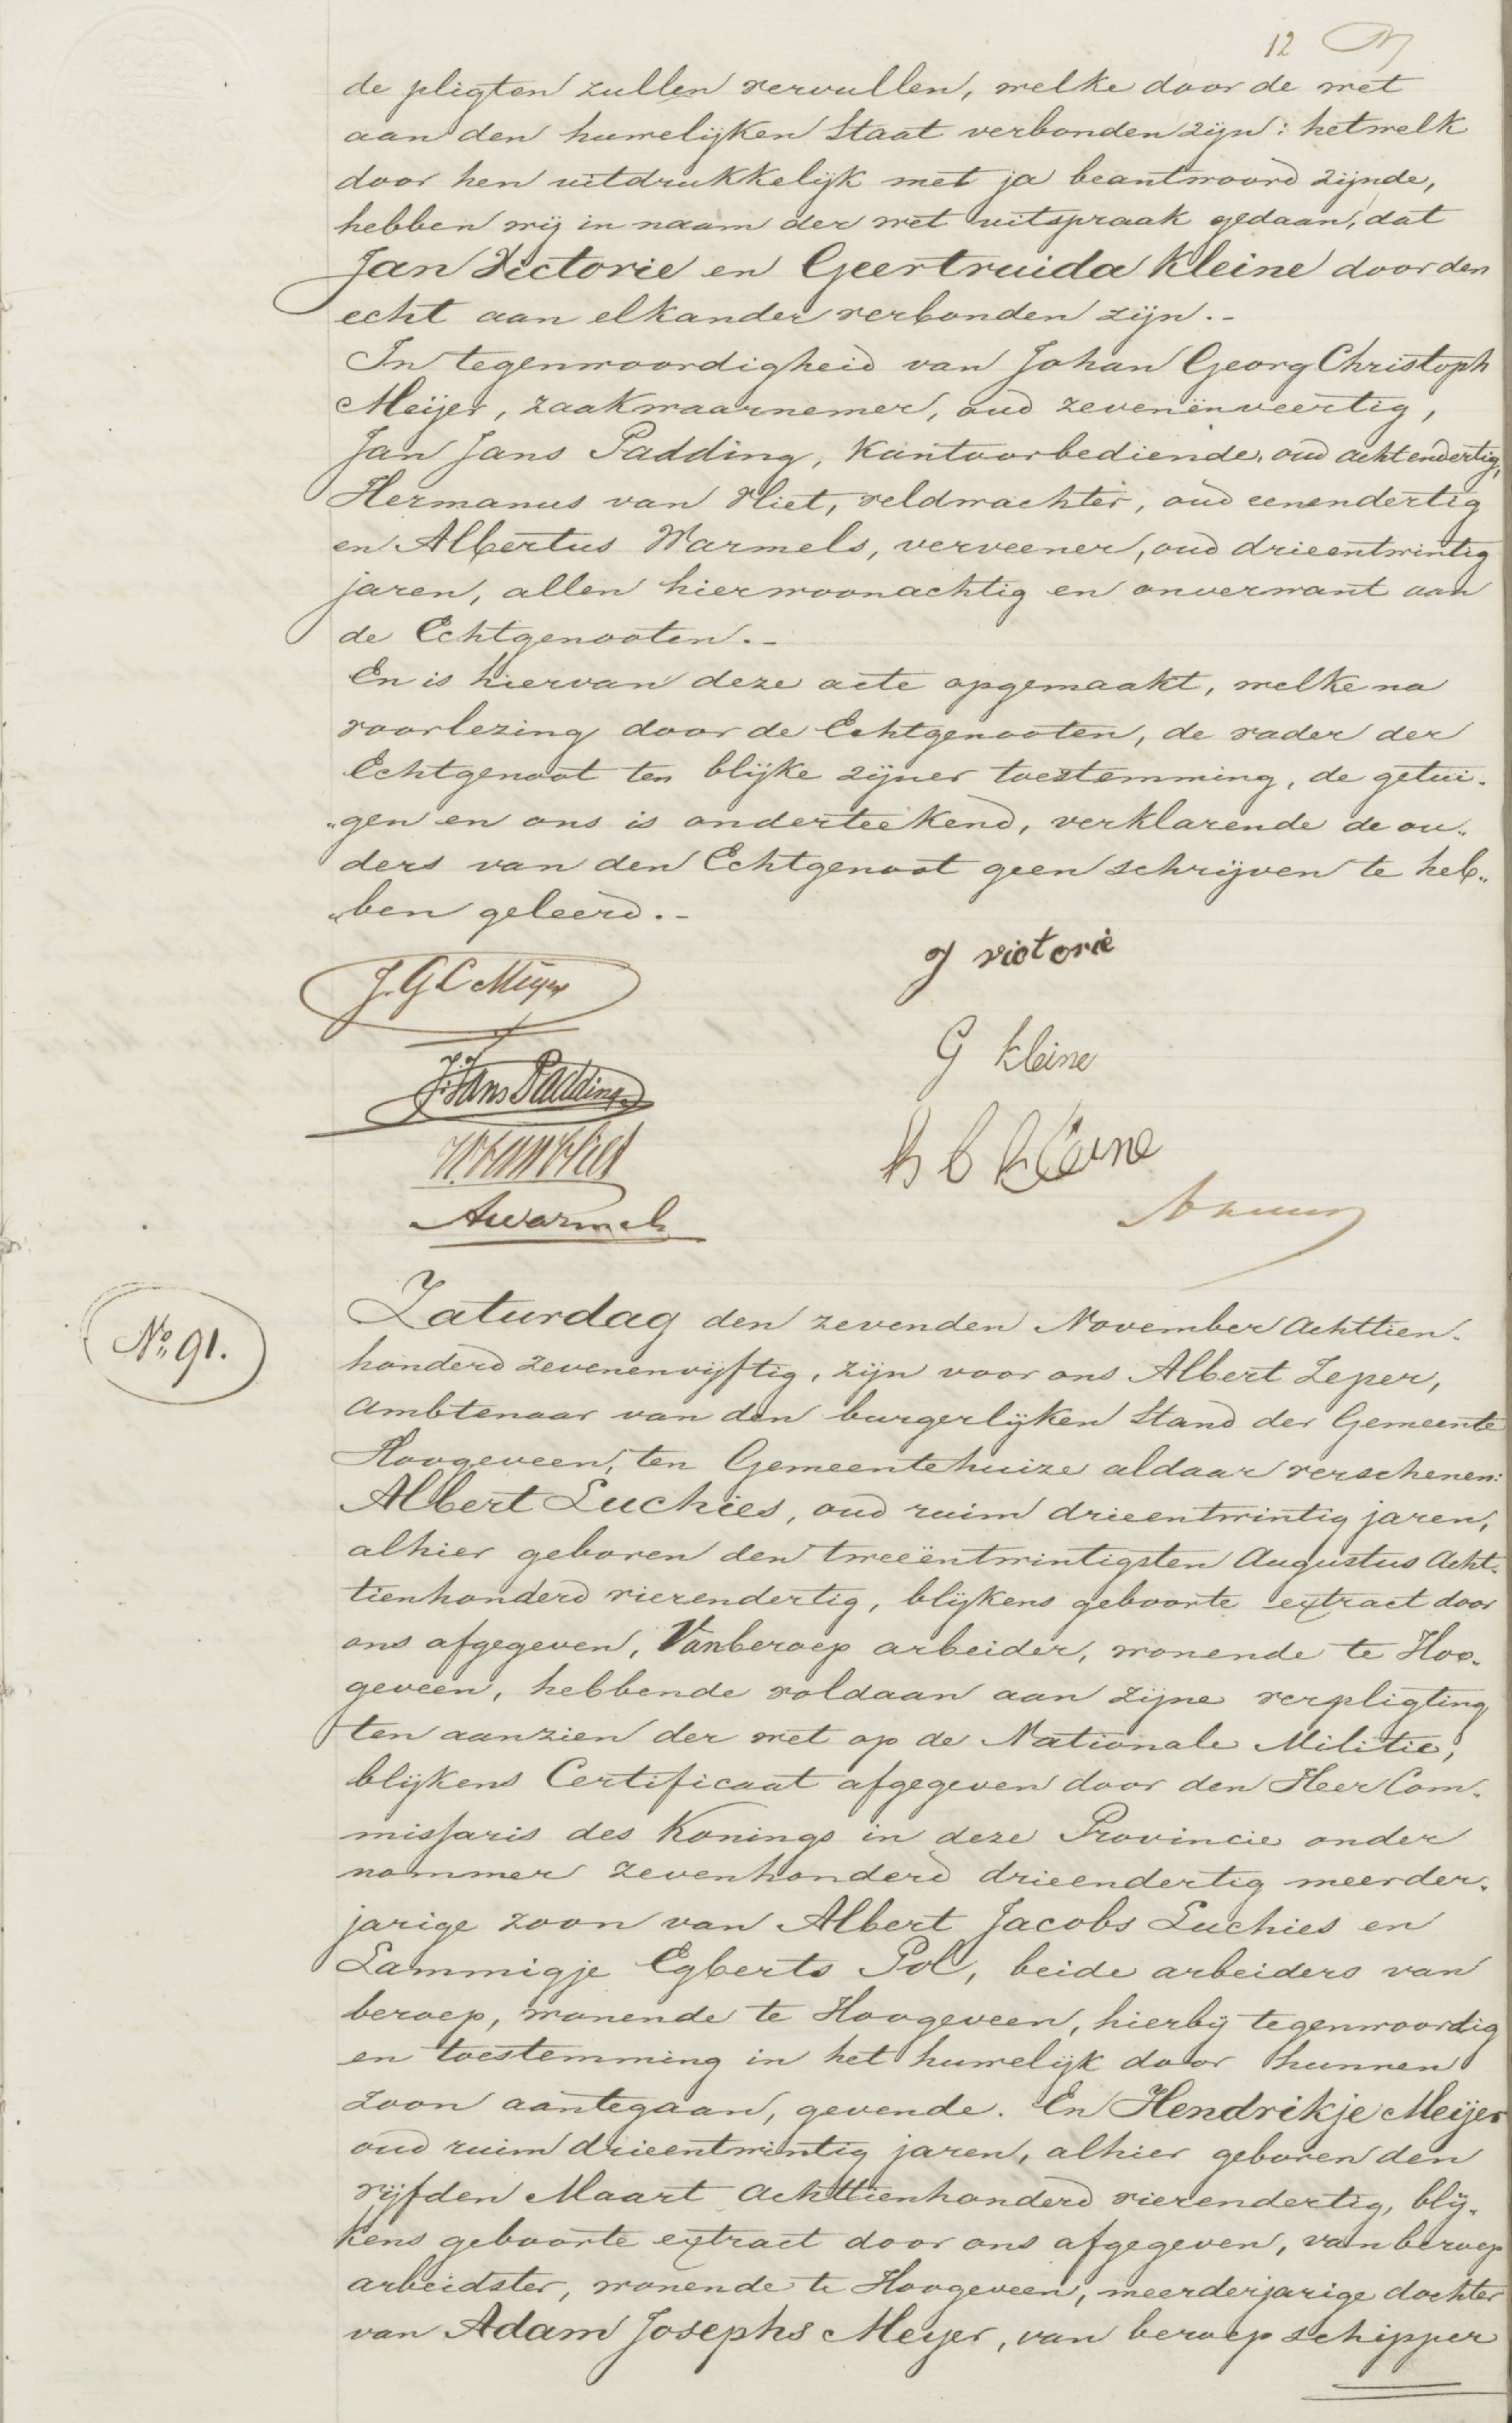 12
de pligten zullen vervullen, welke door de wet
aan den huwelijken Staat verbonden zijn: hetwelk
door hen uitdrukkelijk met ja beantwoord zijnde,
hebben wij in naam der wet uitspraak gedaan, dat
Jan Victorie en Geertruida Kleine door den
echt aan elkander verbonden zijn.-
In tegenwoordigheid van Johan Georg Christoph
Meijer, zaakwaarnemer, oud zevenënveertig,
Jan Jans Padding, Kantoorbediende, oud achtendertig,
Hermanus van Vliet, veldwachter, oud eenendertig
en Albertus Warmels, verveener, oud drieentwintig
jaren, allen hier woonachtig en onverwant aan
de Echtgenooten.-
En is hiervan deze acte opgemaakt, welke na
voorlezing door de Echtgenooten, de vader der
Echtgenoot ten blijke zijner toestemming, de getui-
"gen en ons is onderteekend, verklarende de ou"
ders van den Echtgenoot geen schrijven te heb"
"ben geleerd.-
J. G C Meijer
J victorie
G kleine
J. Jans Padding
H. van Vliet
Kleine
A warmels
No 91.
Zaturdag den zevenden November Achttien-
honderd zevenenvijftig, zijn voor ons Albert Zeper,
Ambtenaar van den burgerlijken Stand der Gemeente
Hoogeveen, ten Gemeentehuize aldaar verschenen:
Albert Luchies, oud ruim drieentwintig jaren,
alhier geboren den tweeëntwintigsten Augustus Acht-
tienhonderd vierendertig, blijkens geboorte extract door
ons afgegeven, Van beroep arbeider, wonende te Hoo-
geveen, hebbende voldaan aan zijne verpligting
ten aanzien der wet op de Nationale Militie,
blijkens Certificaat afgegeven door den Heer Com-
missaris des Konings in deze Provincie onder
nommer zevenhonderd drieendertig meerder-
jarige zoon van Albert Jacobs Luchies en
Lammigje Egberts Pol, beide arbeiders van
beroep, wonende te Hoogeveen, hierbij tegenwoordig
en toestemming in het huwelijk door hunnen
zoon aantegaan, gevende. En Hendrikje Meijer
oud ruim drieentwintig jaren, alhier geboren den
vijfden Maart Achttienhonderd vierendertig, blij-
kens geboorte extract door ons afgegeven, van beroep
arbeidster, wonende te Hoogeveen, meerderjarige dochter
van Adam Josephs Meyer, van beroep schipper